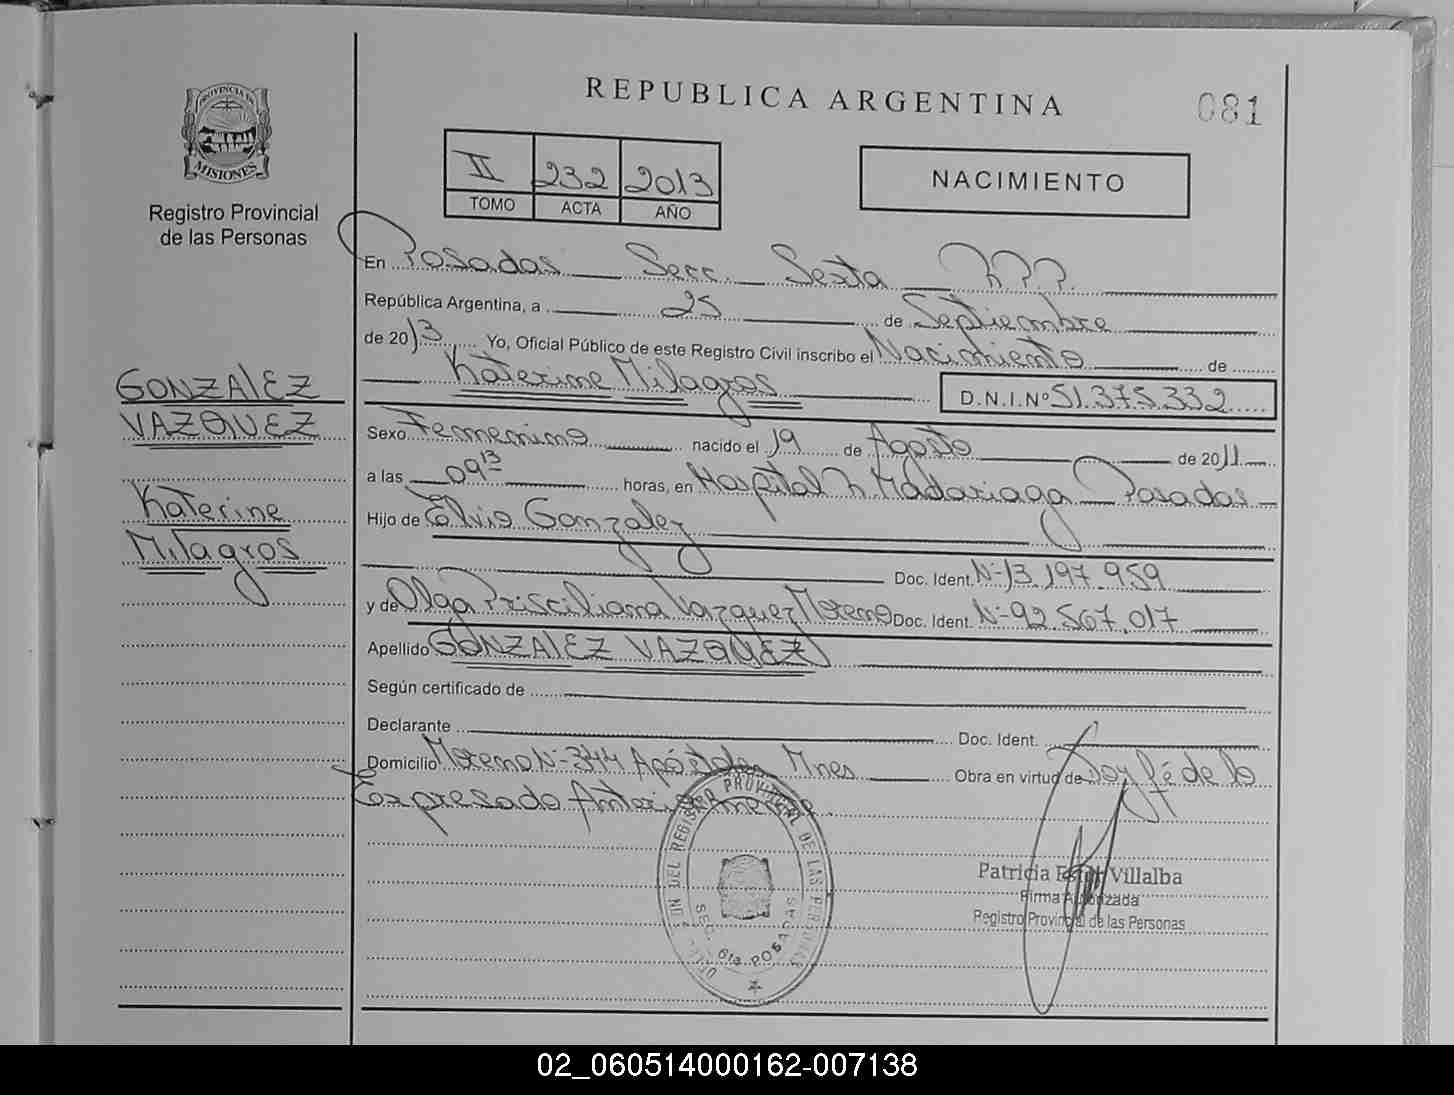 REPUBLICA ARGENTINA
081
PROVINCIA DE
MISIONES
Registro Provincial
de las Personas
II 232 2013
TOMO ACTA AÑO
NACIMIENTO
En Posadas Secc. Sexta R.P.P.
República Argentina, a 25 de Septiembre
de 2013 Yo, Oficial Público de este Registro Civil inscribo el Nacimiento de
Katerine Milagros D.N.I.Nº 51.375.332
GONZALEZ
VAZQUEZ
Katerine
Milagros
Sexo Femenino nacido el 19 de Agosto de 2011
a las 09 13 horas, en Hospital R. Madariaga Posadas
Hijo de Elvio Gonzalez
Doc. Ident. Nº 13.197.959
y de Olga Prisciliana Vazquez Moreno Doc. Ident. Nº 92.567.017
Apellido GONZALEZ VAZQUEZ
Según certificado de
Declarante Doc. Ident.
Domicilio Moreno Nº 344 Apóstoles Mnes Obra en virtud de Doy fé de lo
Expresado Anteriormente.
DEL REGISTRO PROVINCIAL DE LAS PERSONAS
SEC. 6ta POSADAS
Patricia Villalba
Firma Autorizada
Registro Provincial de las Personas
02_060514000162-007138